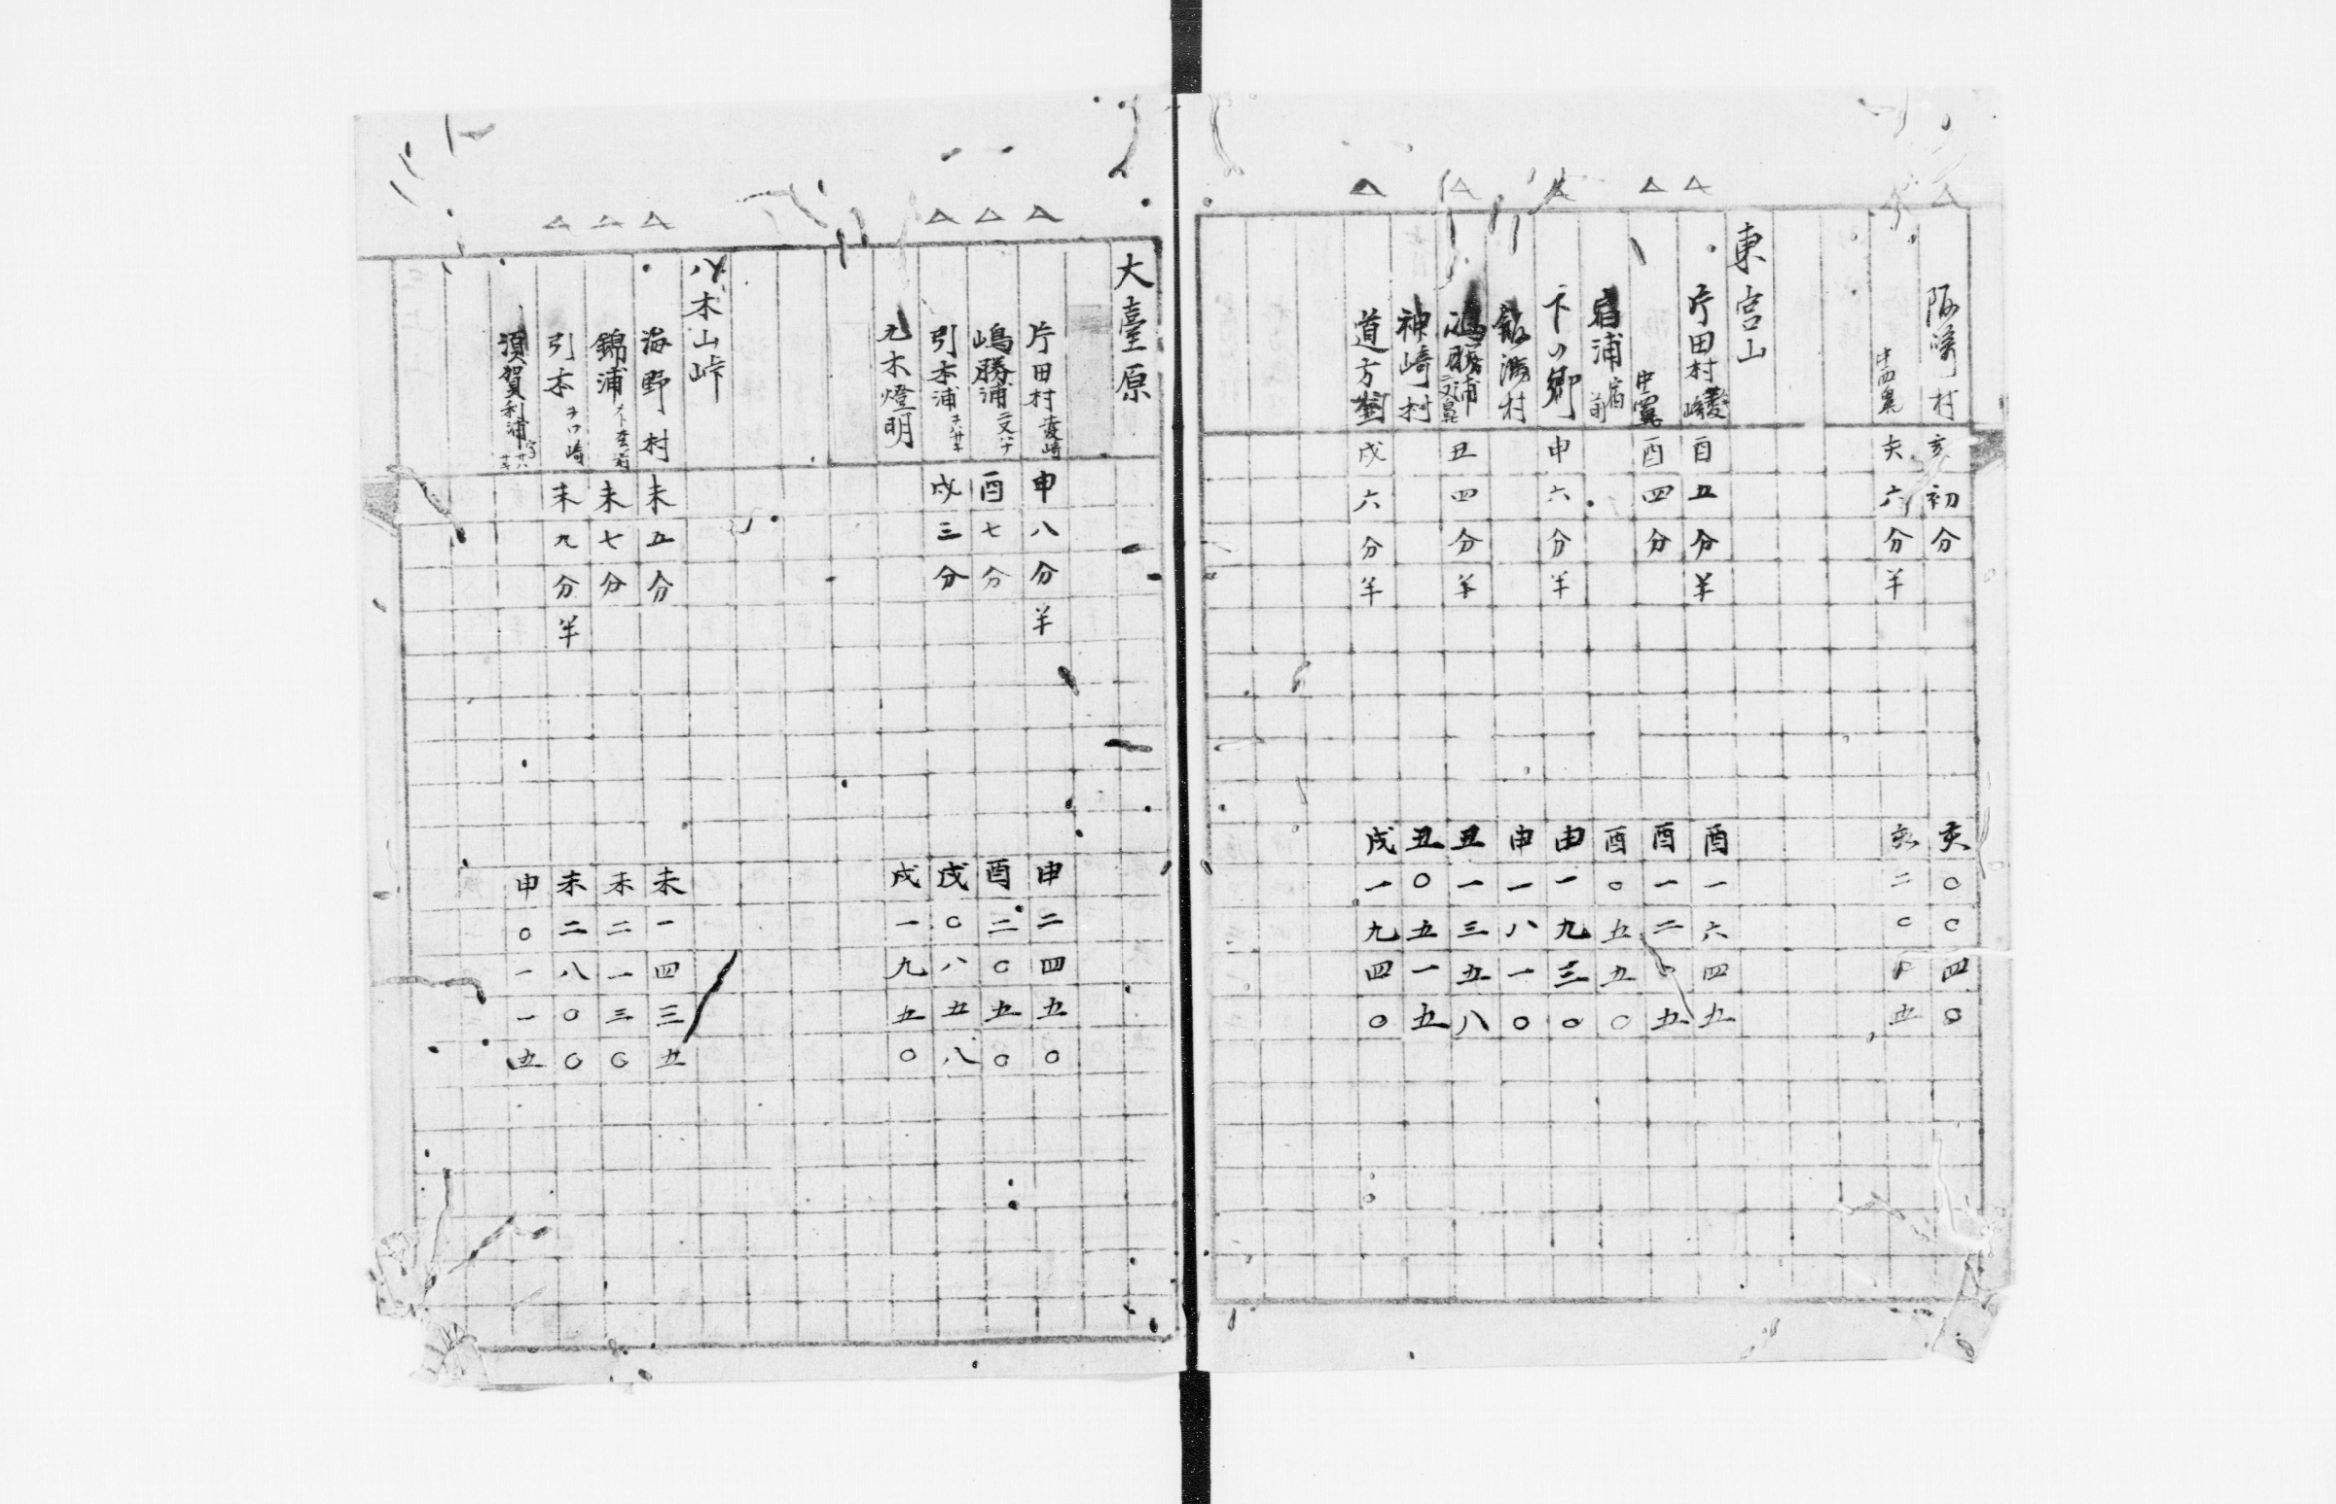 村 亥初分 亥〇〇四〇
六分半 亥二〇 五
東宮山
片田村 酉五分半 酉一六四五
酉四分 酉一二〇五
宿浦 宿前 酉〇五五〇
下ノ郷 申六分半 申一九三〇
村 申一八一〇
浦 丑四分半 丑一三五八
神崎村 丑〇五一五
道方 戌六分半 戌一九四〇
大臺原
片田村 申八分半 申二四五〇
嶋勝浦 酉七分 酉二〇五〇
引本浦 戌三分 戌〇八五八
九木燈明 戌一九五〇
八木山峠
海野村 未五分 未一四三五
錦浦 未七分 未二一三〇
引本 未九分半 未二八〇〇
須賀利浦 申〇一一五